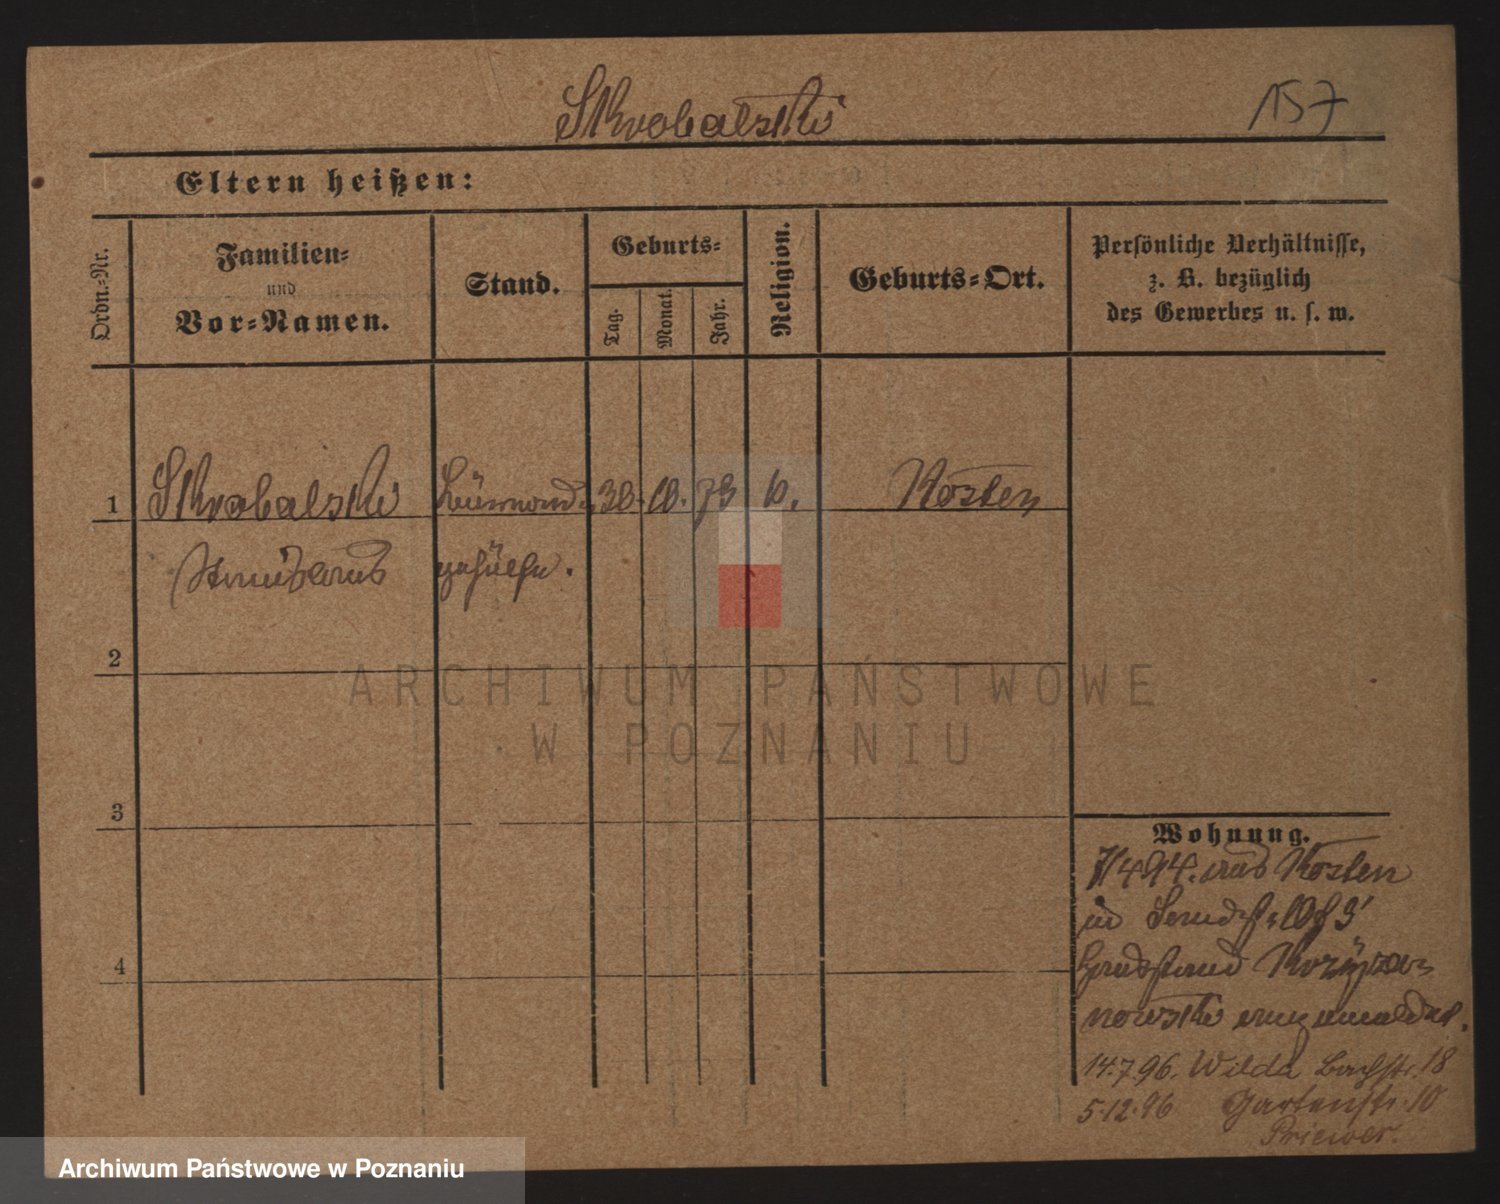 Skrobalski 157
Eltern heißen:
Ordn.-Nr.
Familien-
und
Vor-Namen.
Stand.
Geburts-
Tag.
Monat.
Jahr.
Religion.
Geburts-Ort.
Persönliche Verhältnisse,
z. B. bezüglich
des Gewerbes u. s. w.
1 Skrobalski 30. 10. 73 Kosten
Stanislaus gehülfe.
2
3
4
Wohnung.
94. aus Kosten
in
nowski angemeldet.
14.7.96. Wilda Bachstr. 18
5.12.96 Gartenstr. 10
Priewer.
ARCHIWUM PAŃSTWOWE
W POZNANIU
Archiwum Państwowe w Poznaniu